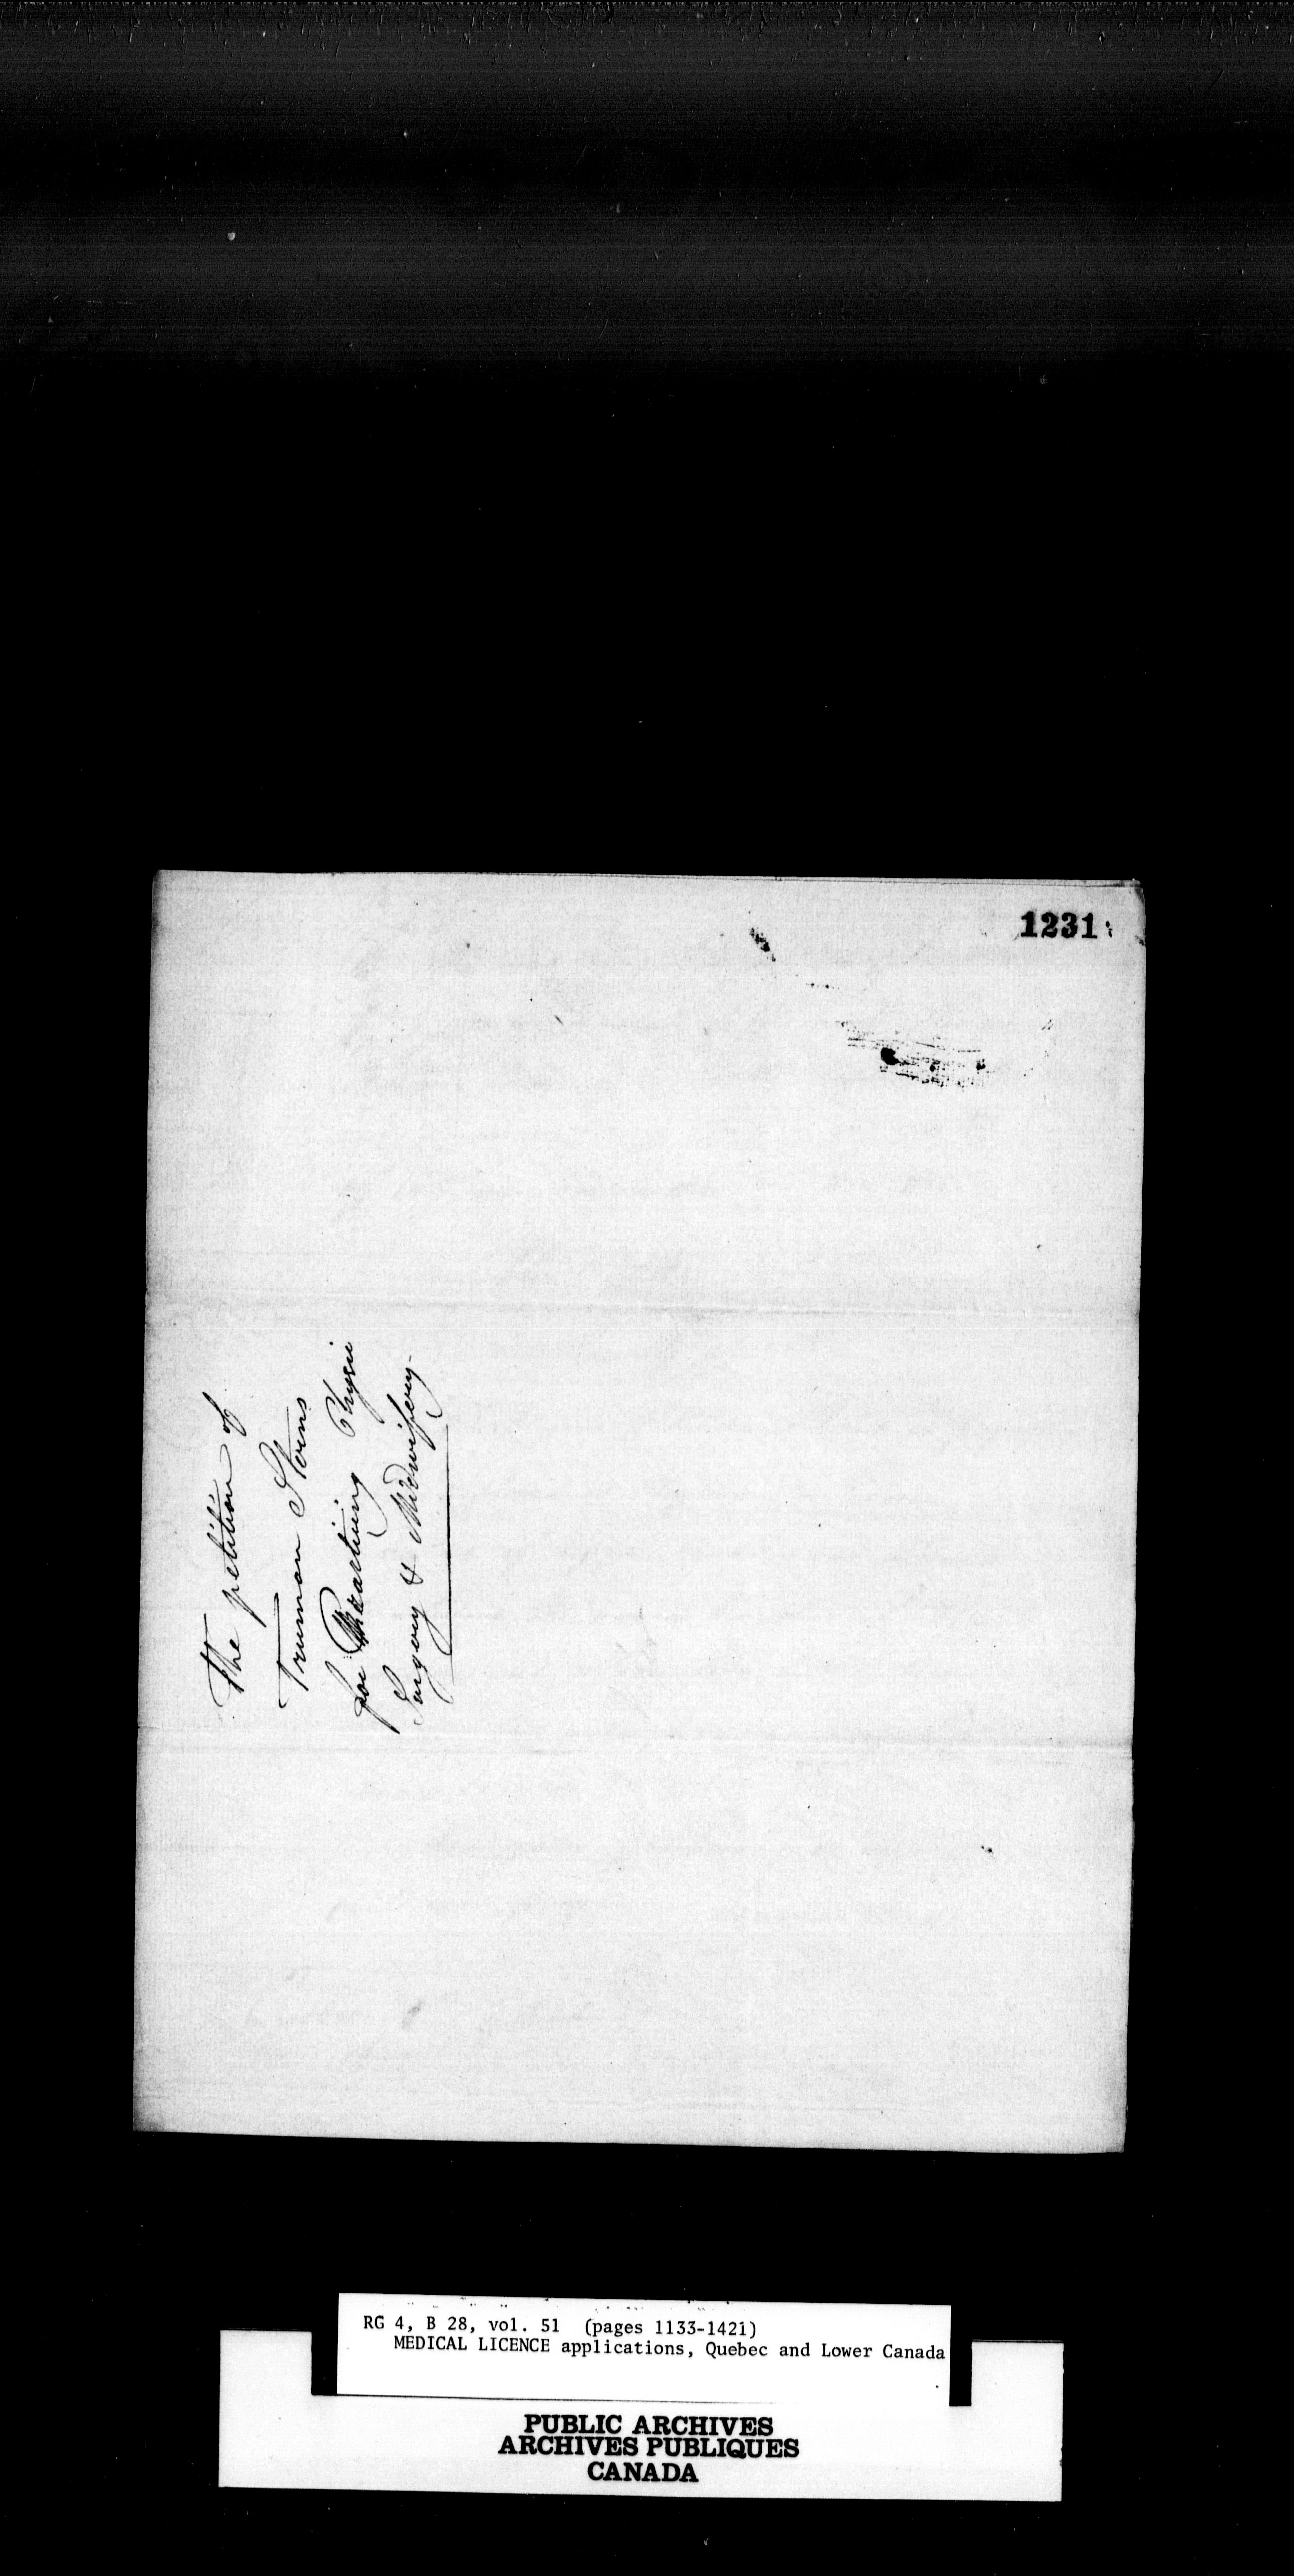 1231
The petition of
Truman Sterns
for Practising Physic
Surgery & Midwifery-
RG 4, B 28, vol. 51 (pages 1133-1421)
MEDICAL LICENCE applications, Quebec and Lower Canada
PUBLIC ARCHIVES
ARCHIVES PUBLIQUES
CANADA